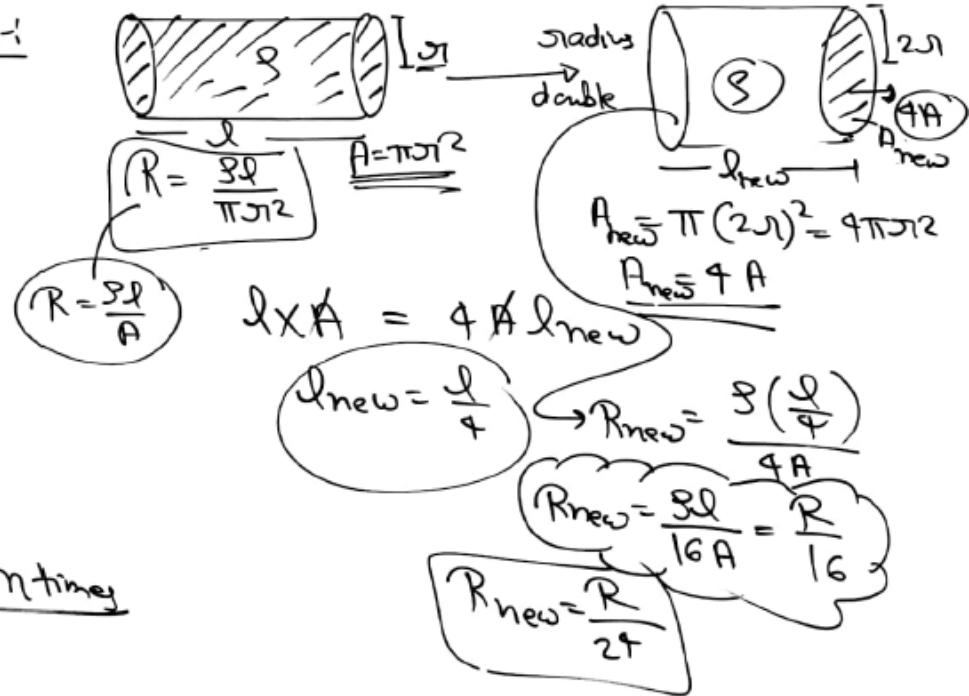 ρ
r
l
A = πr²
R = ρl / πr²
R = ρl / A
radius
double
ρ
2r
4A
A new
l new
A new = π(2r)² = 4πr²
A new = 4A
l × A = 4 A l new
l new = l / 4
R new = ρ(l/4) / 4A
R new = ρl / 16A = R / 16
R new = R / 24
n times